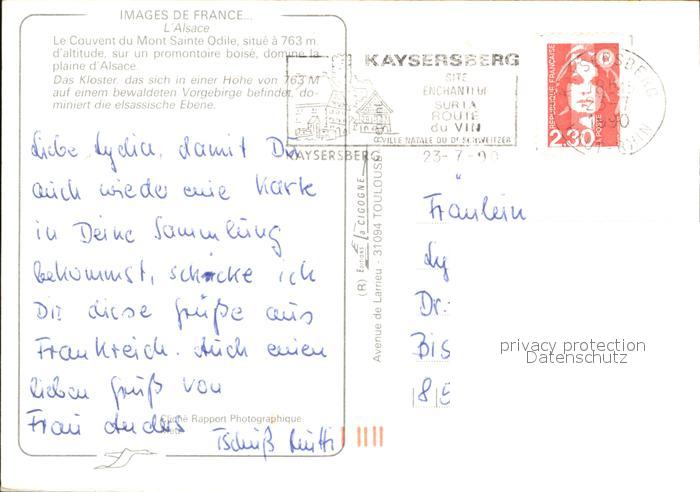 IMAGES DE FRANCE...
L'Alsace
Le Couvent du Mont Sainte Odile, situé à 763 m.
d'altitude, sur un promontoire boisé, domine la
plaine d'Alsace.
Das Kloster, das sich in einer Hohe von 763 M
auf einem bewaldeten Vorgebirge befindet, do-
miniert die elsassische Ebene.
Liebe Lydia, damit Du
auch wieder eine Karte
in Deine Sammlung
bekommst, schicke ich
Dir diese Grüße aus
Frankreich. Auch einen
lieben Gruß von
Frau Anders
Tschüß
Cliché Rapport Photographique
KAYSERSBERG
SITE
ENCHANTEUR
SUR LA
ROUTE
du VIN
VILLE NATALE DU Dr SCHWEITZER
KAYSERSBERG
23-7-90
REPUBLIQUE FRANÇAISE
2,30
LA POSTE
1990
(R) Editions la CIGOGNE
Avenue de Larrieu - 31094 TOULOUSE
Fräulein
Ly
Dr.
Bis
8
privacy protection
Datenschutz